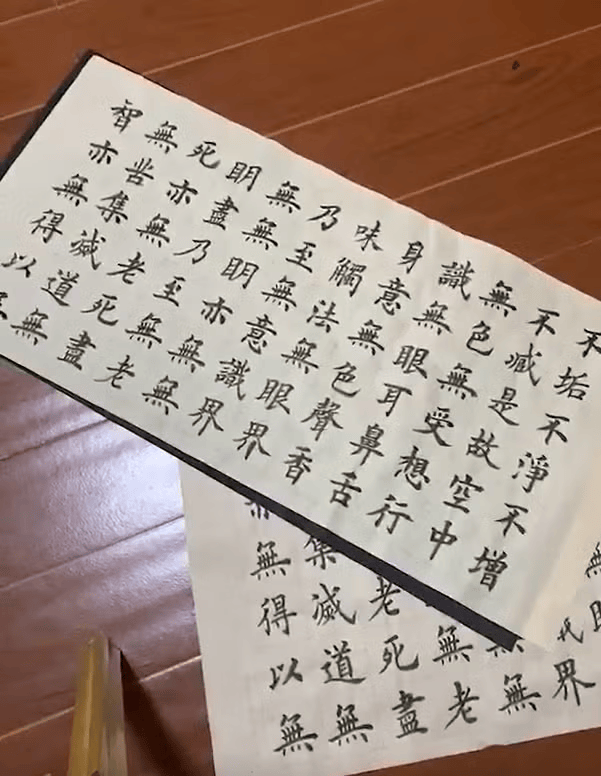 不垢不淨不增
不減是故空中
無色無受想行
識無眼耳鼻舌
身意無色聲香
味觸法無眼界
乃至無意識界
無無明亦無無
明盡乃至無老
死亦無老死盡
無苦集滅道無
智亦無得以無
界
無無
無老
老死盡
集滅道無
亦無得以無